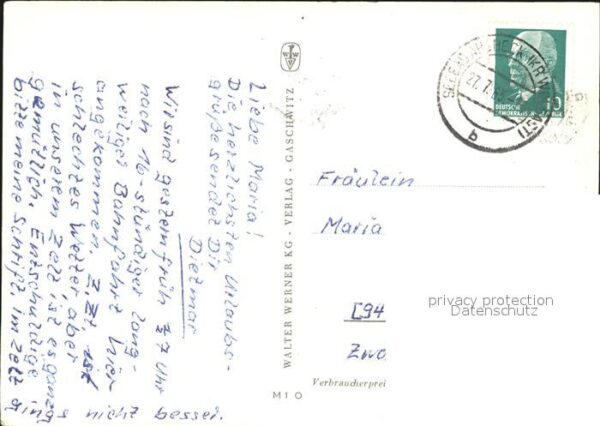 Liebe Maria!
Die herzlichsten Urlaubs-
grüße sendet Dir
Dietmar
Wir sind gestern früh 7 Uhr
nach 16-stündiger lang-
weiliger Bahnfahrt hier
angekommen. Z.Zt ist
schlechtes Wetter aber
in unserem Zelt ist es ganz
gemütlich. Entschuldige
bitte meine Schrift im Zelt
ging's nicht besser.
WALTER WERNER KG. - VERLAG - GASCHWITZ
M 1 O
27.7.
b
10
DEUTSCHE
DEMOKRATISCHE REPUBLIK
Fräulein
Maria
[94
Zwo
privacy protection
Datenschutz
Verbraucherprei